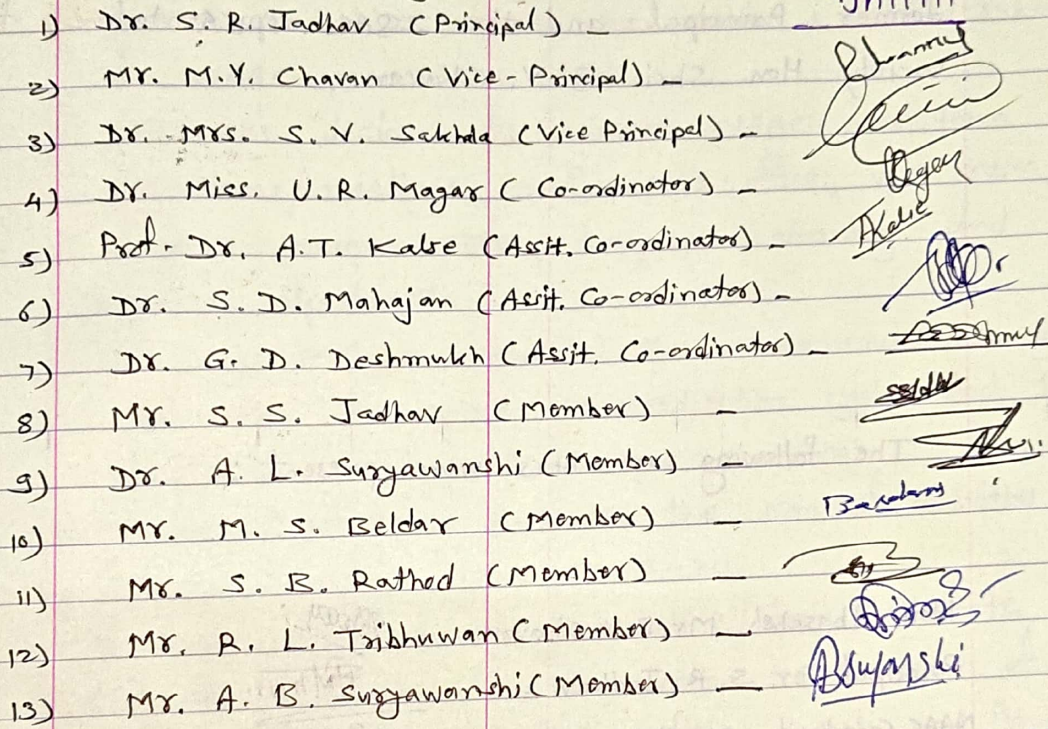 1) Dr. S. R. Jadhav (Principal) -
2) Mr. M.Y. Chavan (Vice-Principal) -
3) Dr. Mrs. S. V. Sakhala (Vice Principal) -
4) Dr. Miss. U. R. Magar (Co-ordinator) -
5) Prof. Dr. A.T. Kalse (Assit. Co-ordinator) - Kalse
6) Dr. S. D. Mahajan (Assit. Co-ordinator) -
7) Dr. G. D. Deshmukh (Assit. Co-ordinator) -
8) Mr. S. S. Jadhav (Member) -
9) Dr. A. L. Suryawanshi (Member) -
10) Mr. M. S. Beldar (Member) -
11) Mr. S. B. Rathod (Member) -
12) Mr. R. L. Tribhuwan (Member) -
13) Mr. A. B. Suryawanshi (Member) -